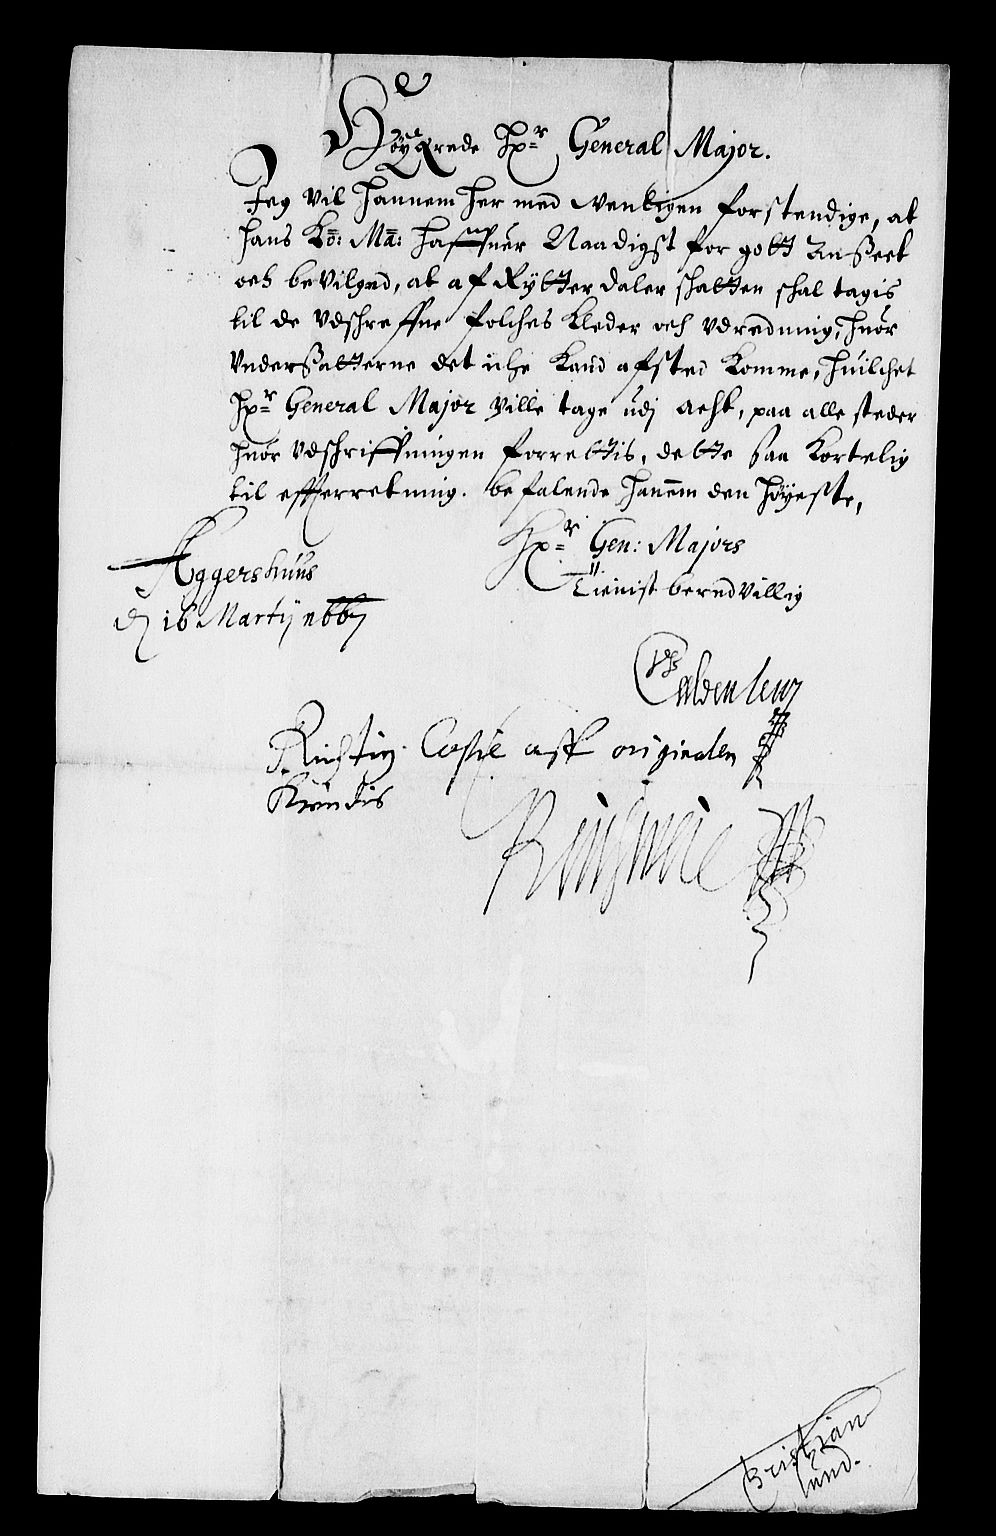 Høyærede Hr General Major.
Jeg vil hannem her med venligen forstendige, at
hans Ko: Ma: haffuer Naadigst for gott Ansseet
och bevilget, at af Rytter daler skatten skal tagis
til de vdschrefne folches kleder och vdredning, huor
Vndersatterne det iche kand afsted komme, huilchet
Hr General Major ville tage udj acht, paa alle steder
huor vdschriffningen forrettis, dette saa kortelig
til efterretning. befalende hannem den høyeste,
Hr Gen: Majors
Tienist beredvillig
Aggershuus
d 16 Martij 1667
Gyldenleuz
Richtig Copie aff originalen
Kiendis
Christian
lund.